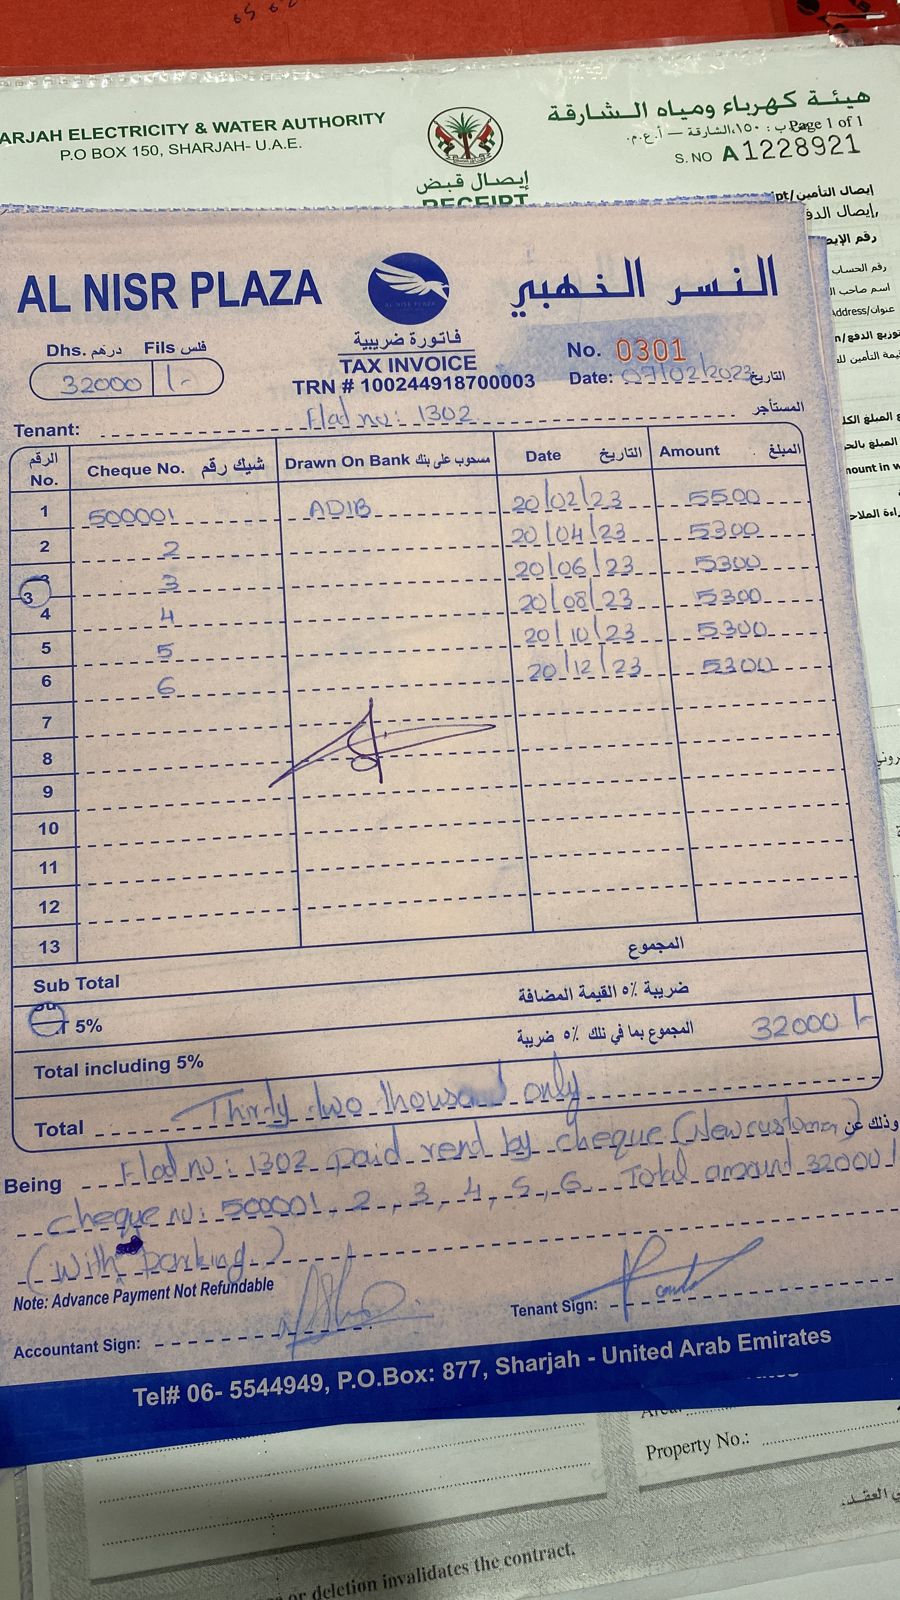 ARJAH ELECTRICITY & WATER AUTHORITY
P.O BOX 150, SHARJAH- U.A.E.
هيئة كهرباء ومياه الشارقة
ب : ١٥٠،الشارقة – أ.ع.م.
Page 1 of 1
S. NO A 1228921
إيصال قبض
RECEIPT
إيصال التأمين/pt
إيصال الدف
رقم الإيص
رقم الحساب
اسم صاحب ال
عنوان/Address
توزيع الدفع/n
AL NISR PLAZA
النسر الذهبي
Dhs. درهم Fils فلس
32000 /-
فاتورة ضريبية
TAX INVOICE
TRN # 100244918700003
No. 0301
Date: 07/02/2023 التاريخ
Tenant: Flat no: 1302 المستأجر
الرقم No. Cheque No. شيك رقم Drawn On Bank مسحوب على بنك Date التاريخ Amount المبلغ
1 500001 ADIB 20/02/23 5500
2 2 20/04/23 5300
3 3 20/06/23 5300
4 4 20/08/23 5300
5 5 20/10/23 5300
6 6 20/12/23 5300
7
8
9
10
11
12
13
Sub Total المجموع
5% ضريبة ٥٪ القيمة المضافة
Total including 5% المجموع بما في ذلك ٥٪ ضريبة 32000/-
Total Thirty two thousand only
Being Flat no: 1302 paid rent by cheque (New customer) وذلك عن
cheque no: 500001, 2, 3, 4, 5, 6 Total amount 32000/
(With parking)
Note: Advance Payment Not Refundable
Accountant Sign:
Tenant Sign:
Tel# 06- 5544949, P.O.Box: 877, Sharjah - United Arab Emirates
Property No.:
or deletion invalidates the contract.